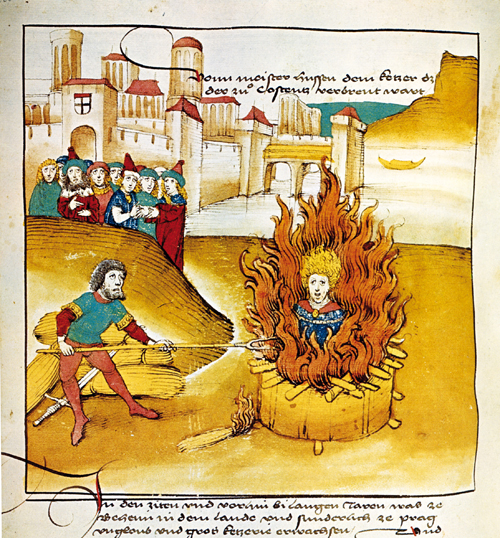 Vonn meister hussen dem ketzer dz
der zuͦ Costentz verbrent wart
In den ziten vnd bi langen Jaren was ze
Behemi in dem lande vnd sunderlich ze prag
vngloub vnd gros ketzerie erwachsen / Vnd